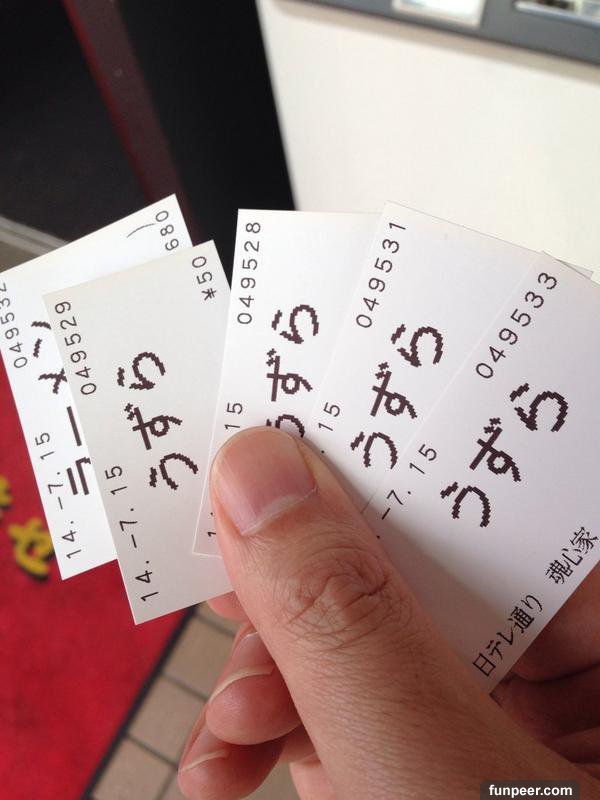 680
ラーメン
14.-7.15
049529
*50
うずら
14.-7.15
049528
うずら
15
049531
うずら
.15
049533
うずら
.-7.15
日テレ通り 魂心家
funpeer.com